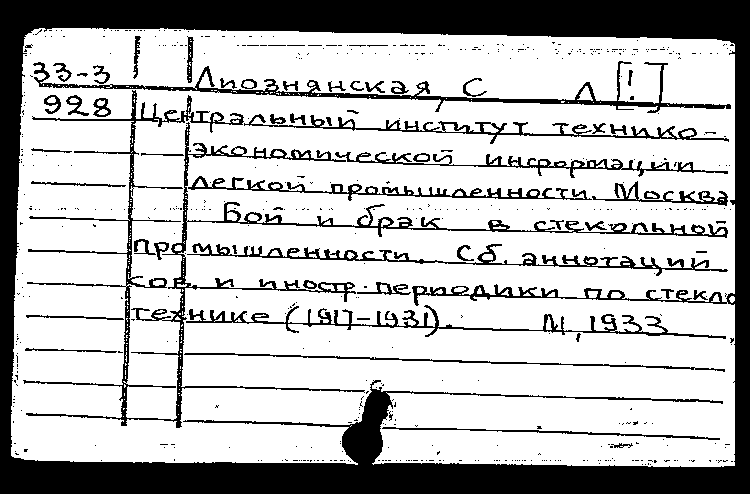 33-3 Лиознянская, С Л [!]
928 Центральный институт технико-
экономической информации
легкой промышленности. Москва.
Бой и брак в стекольной
промышленности. Сб. аннотаций
сов. и иностр. периодики по стекло
технике (1917-1931). М, 1933